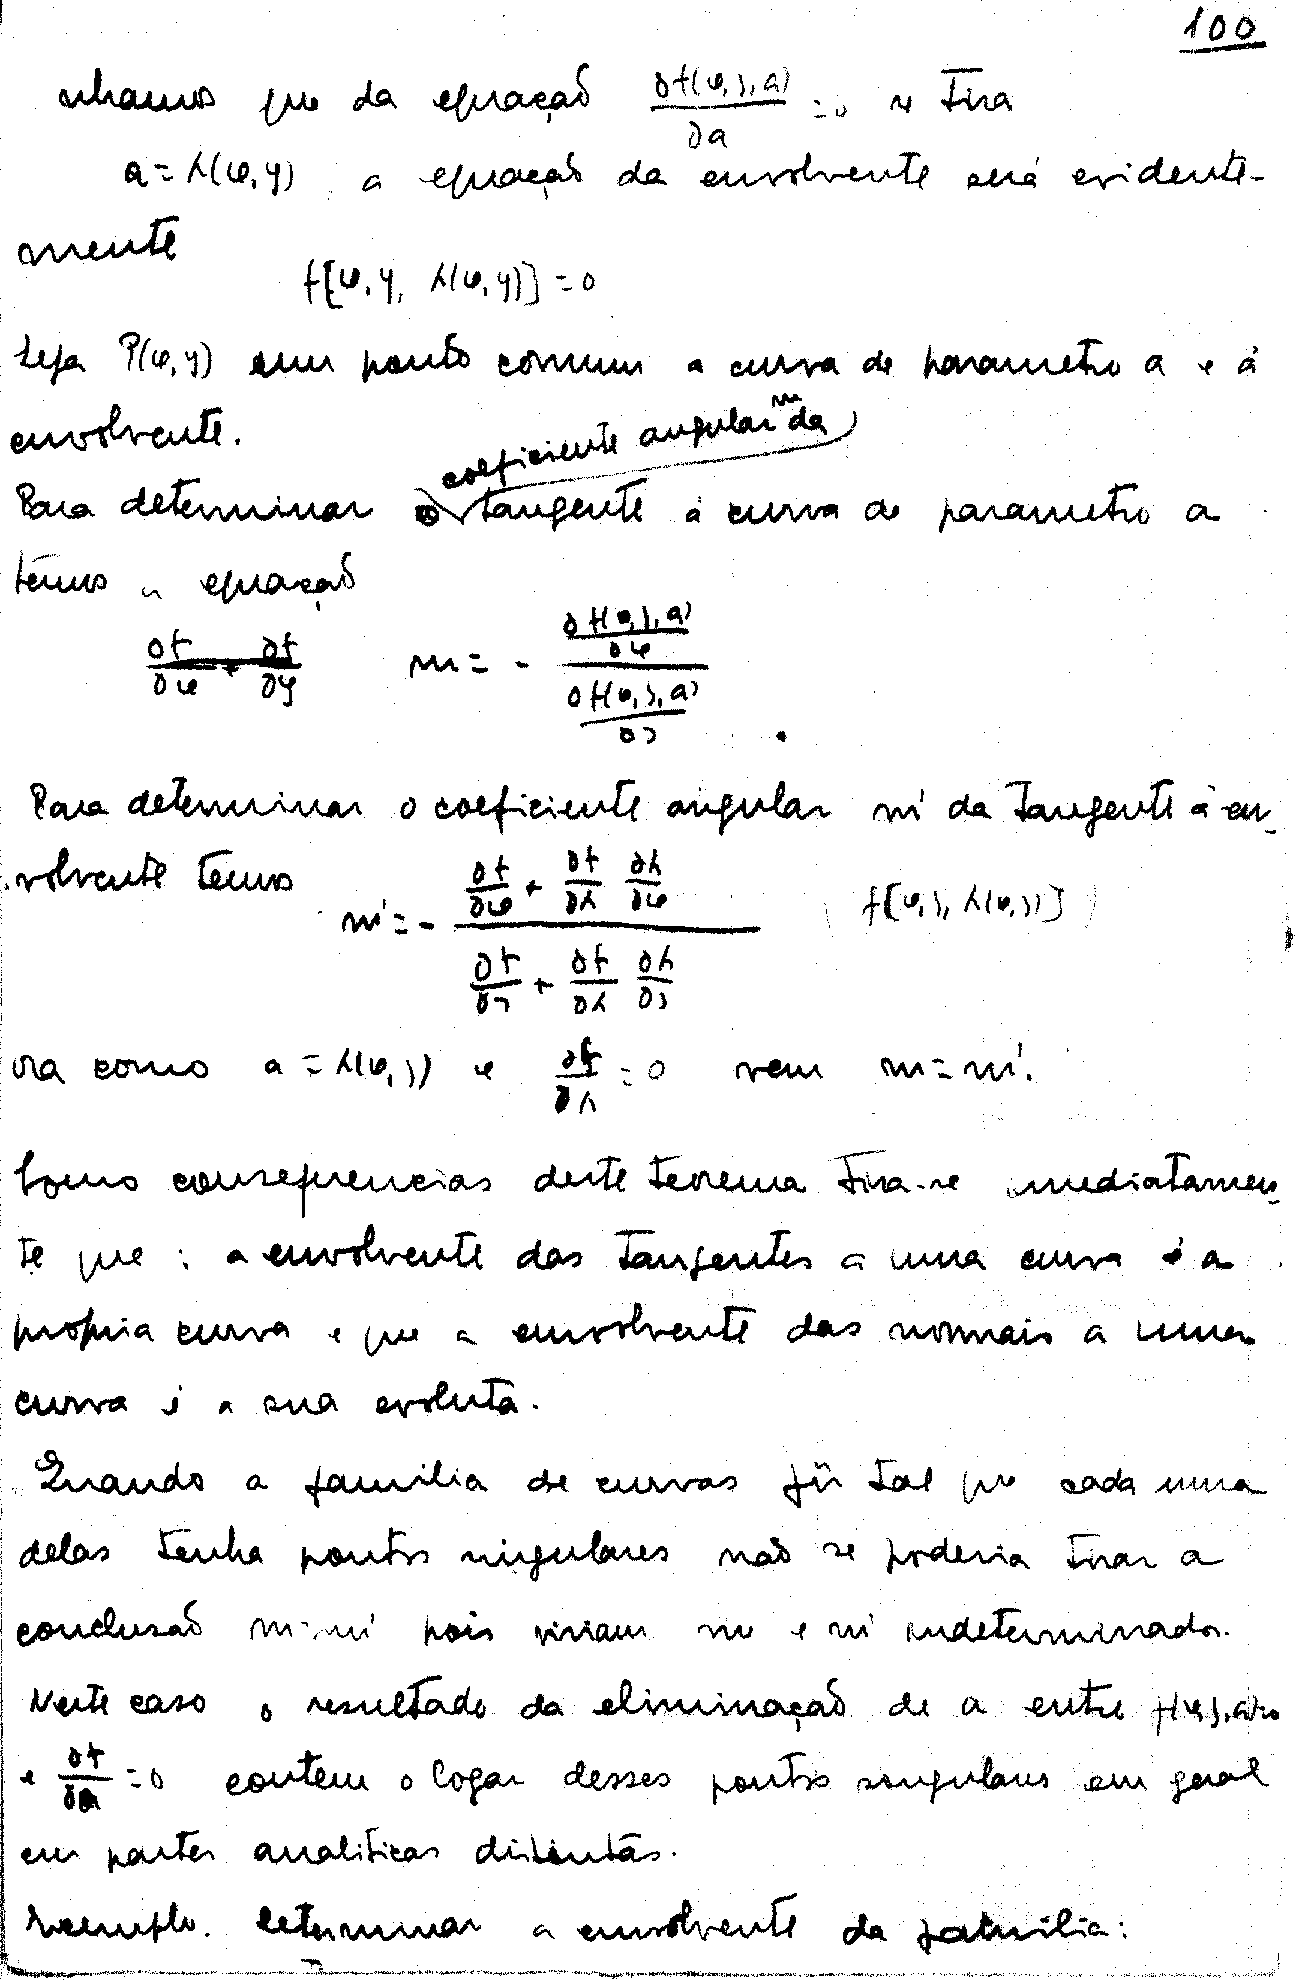 100
nhamos que da equação ∂f(x,y,a)/∂a = 0 se tira
a = λ(x,y) a equação da envolvente será evidente-
mente
f[x,y, λ(x,y)] = 0
Seja P(x,y) um ponto comum a curva de parametro a e á
envolvente.
coeficiente angular m da
Para determinar o tangente á curva de parametro a
temos a equação
∂f/∂x + ∂f/∂y m = - (∂f(x,y,a)/∂x) / (∂f(x,y,a)/∂y)
Para determinar o coeficiente angular m' da tangente á en-
volvente temos
m' = - (∂f/∂x + ∂f/∂λ ∂λ/∂x) / (∂f/∂y + ∂f/∂λ ∂λ/∂y) f[x,y, λ(x,y)]
ora como a = λ(x,y) e ∂f/∂λ = 0 vem m = m'.
Como consequencias deste teorema tira-se imediatamen-
te que : a envolvente das tangentes a uma curva é a
propria curva e que a envolvente das normais a uma
curva é a sua evoluta.
Quando a familia de curvas fôr tal que cada uma
delas tenha pontos singulares não se poderia tirar a
conclusão m = m' pois viriam m e m' indeterminados.
Neste caso o resultado da eliminação de a entre f(x,y,a)=0
e ∂f/∂a = 0 contem o logar desses pontos singulares em geral
em partes analiticas distintas.
Exemplo. Determinar a envolvente da familia: